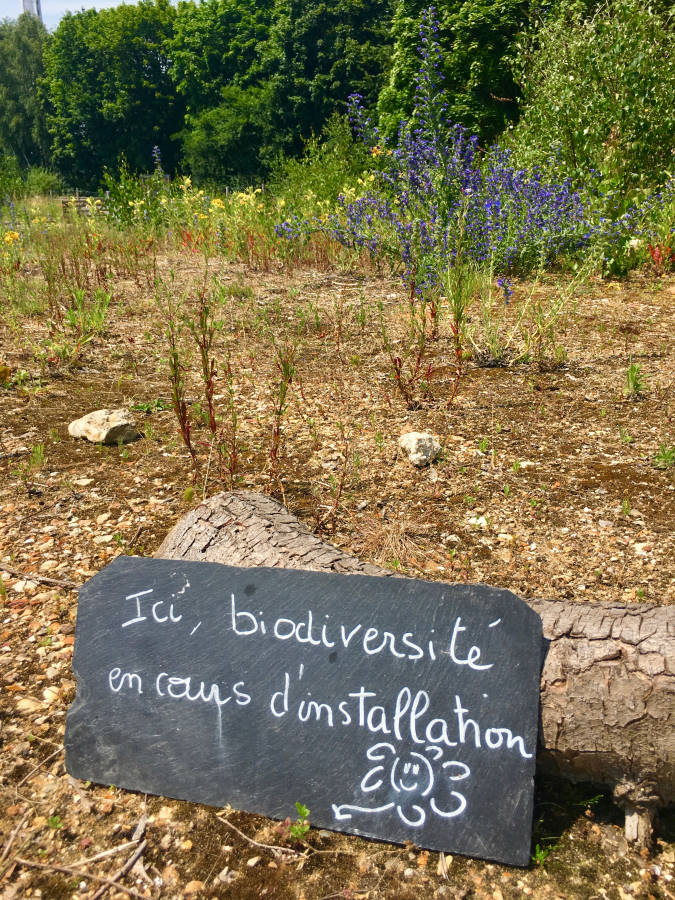 Ici, biodiversité
en cours d'installation